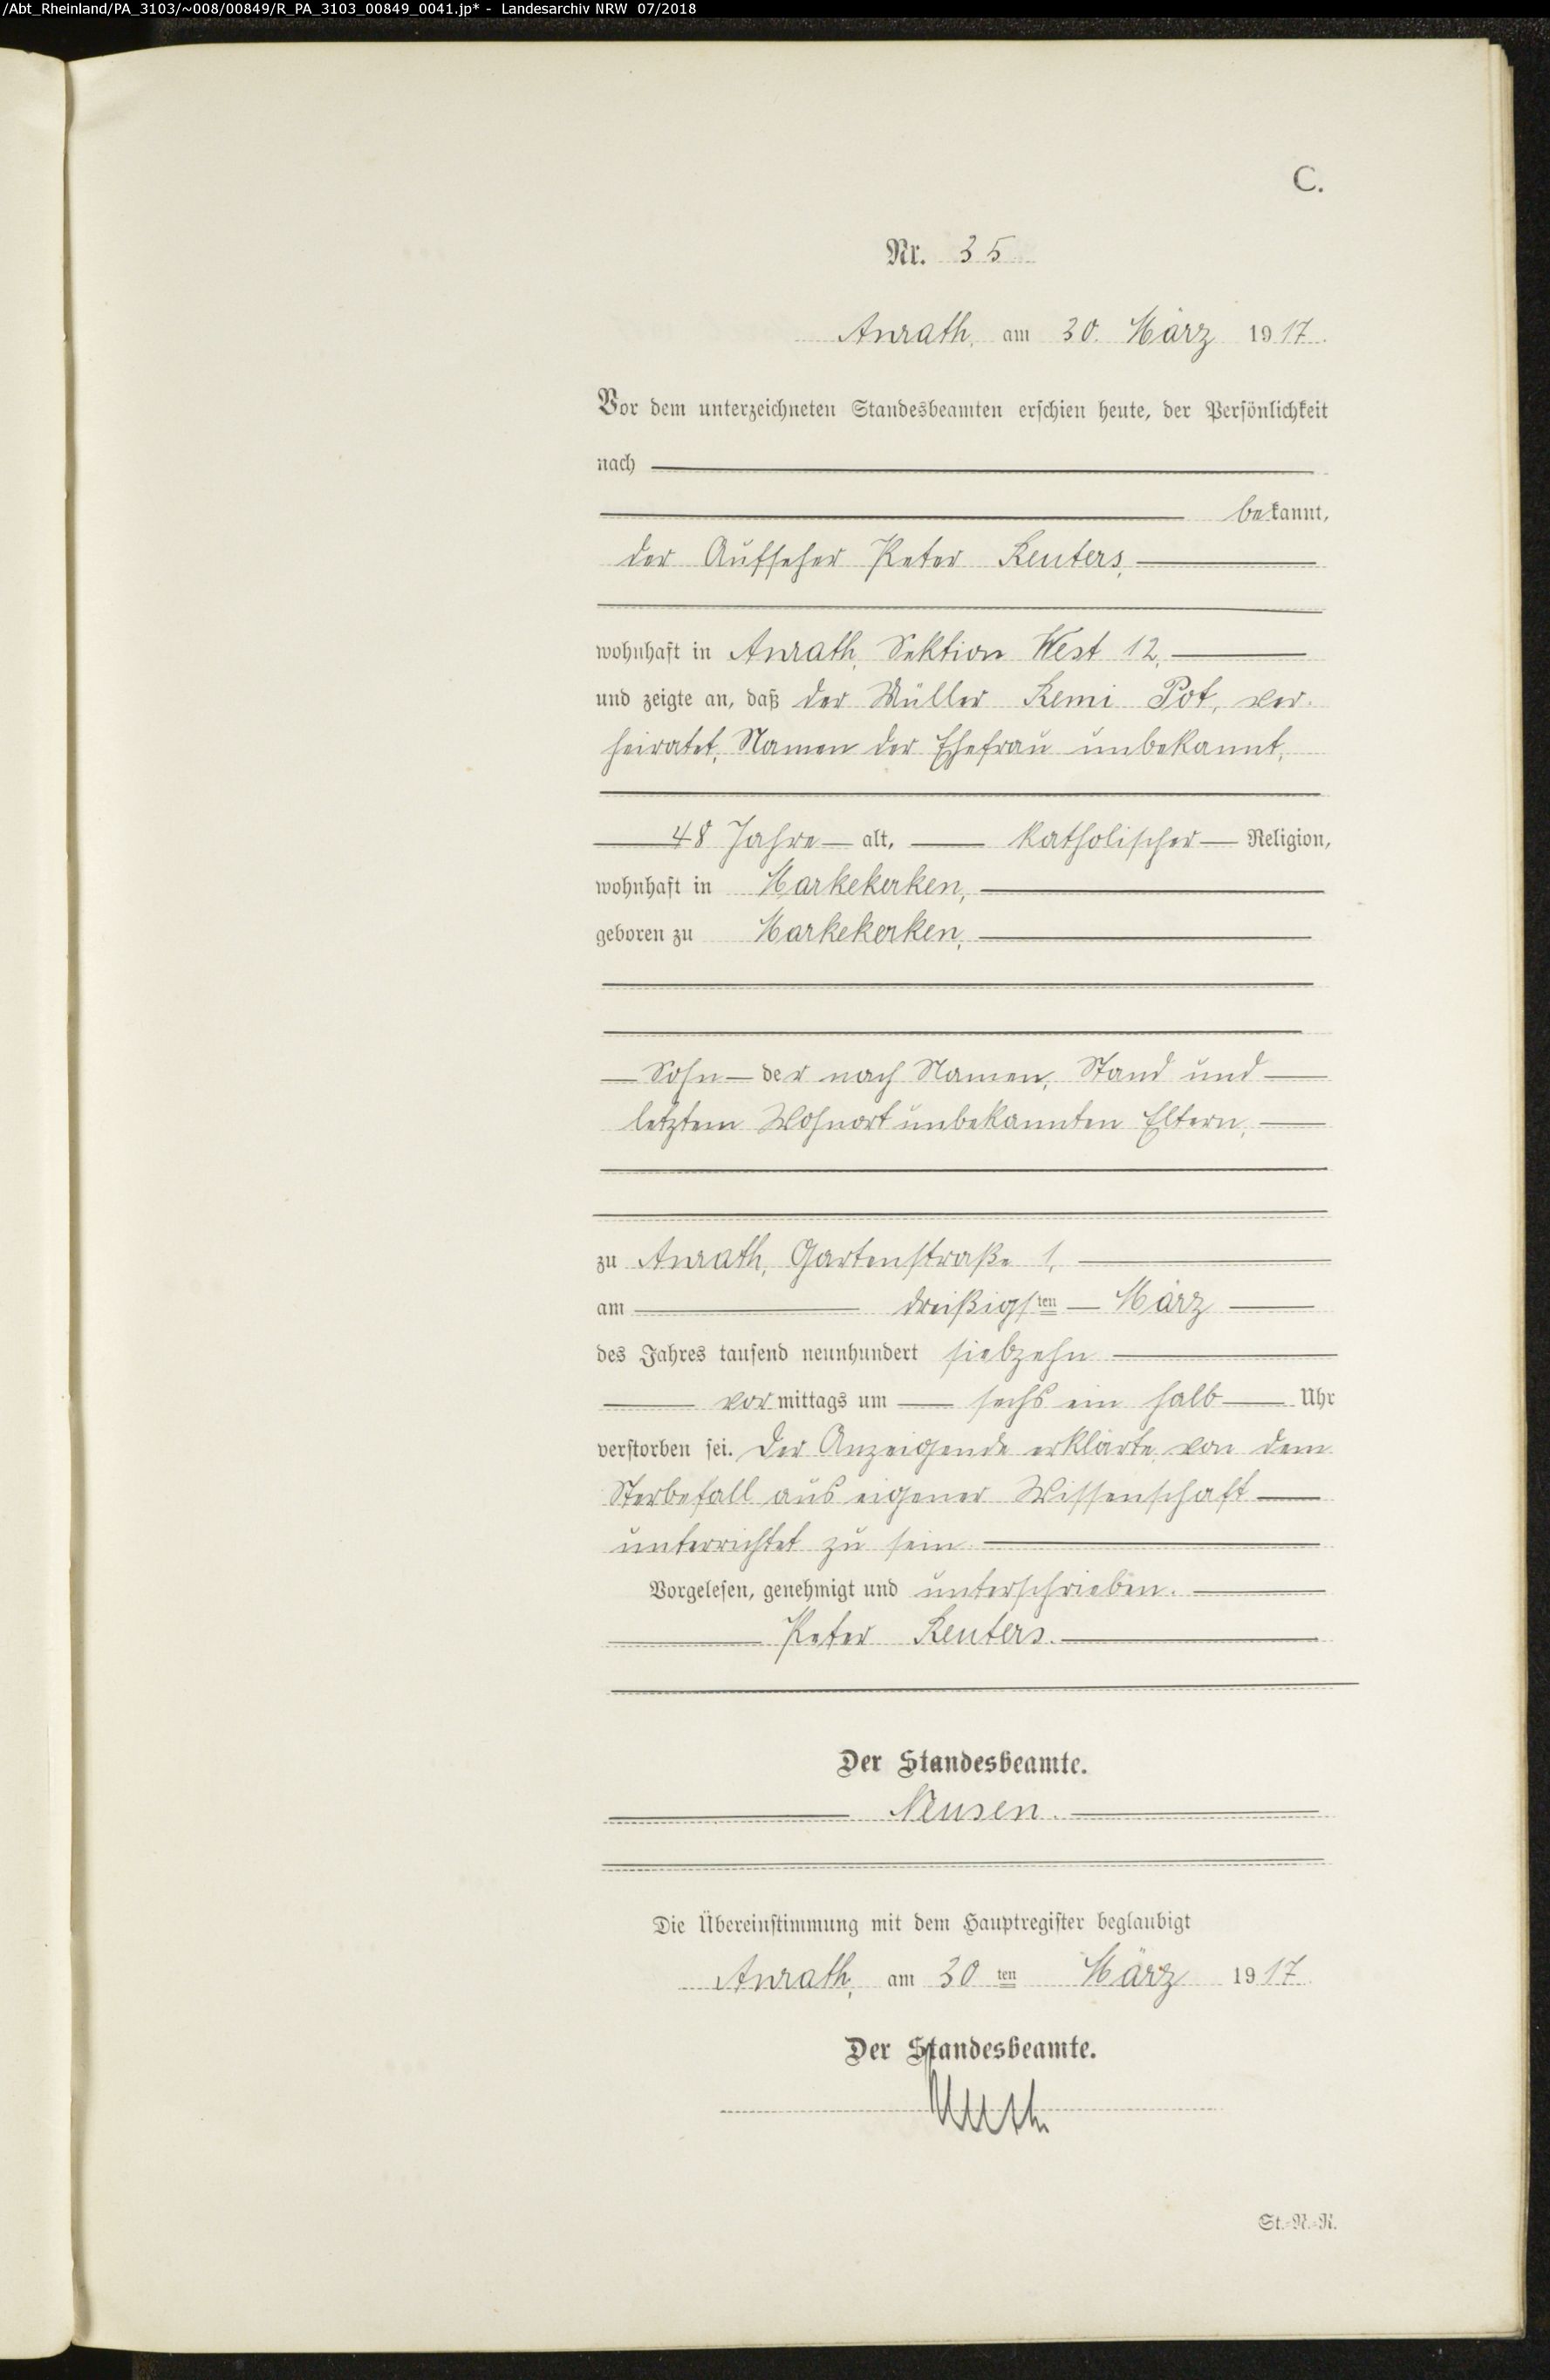 /Abt_Rheinland/PA_3103/~008/00849/R_PA_3103_00849_0041.jp* - Landesarchiv NRW 07/2018
C.
Nr. 35
Anrath, am 30. März 1917.
Vor dem unterzeichneten Standesbeamten erschien heute, der Persönlichkeit
nach
bekannt,
der Aufseher Peter Reuters,
wohnhaft in Anrath, Sektion West 12,
und zeigte an, daß der Müller Remi Pot, ver-
heiratet, Namen der Ehefrau unbekannt,
48 Jahre alt, katholischer Religion,
wohnhaft in Markekerken,
geboren zu Markekerken,
Sohn der nach Namen, Stand und
letztem Wohnort unbekannten Eltern,
zu Anrath, Gartenstraße 1,
am dreißigsten März
des Jahres tausend neunhundert siebzehn
vormittags um sechs ein halb Uhr
verstorben sei. Der Anzeigende erklärte, von dem
Sterbefall aus eigener Wissenschaft
unterrichtet zu sein
Vorgelesen, genehmigt und unterschrieben.
Peter Reuters.
Der Standesbeamte.
Die Übereinstimmung mit dem Hauptregister beglaubigt
Anrath, am 30 ten März 1917
Der Standesbeamte.
St.-N.-R.